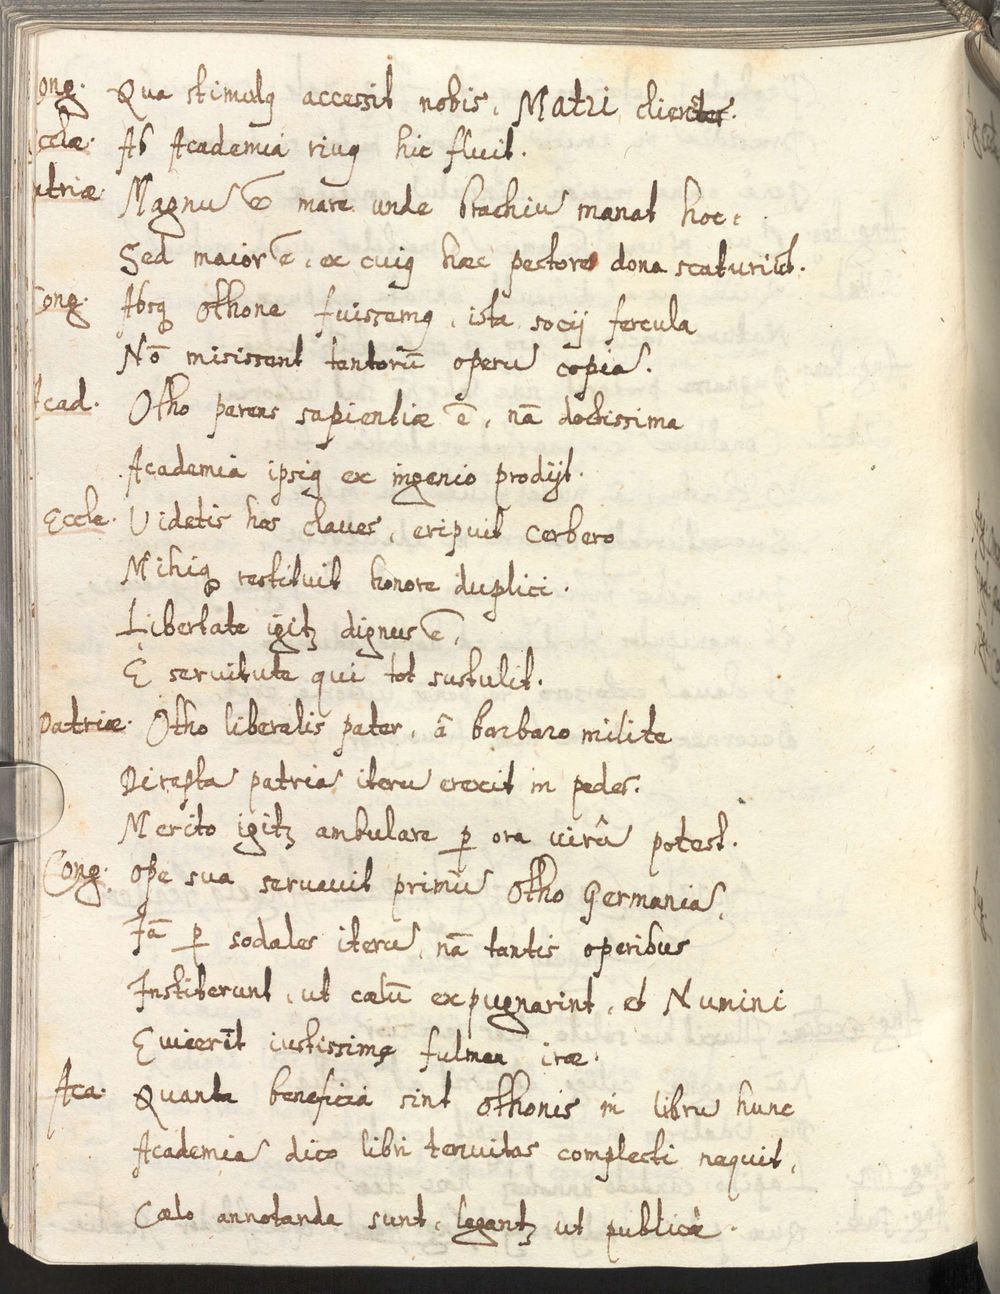 Cong. Qua stimulꝰ accessit nobis, Matri clientes.
Eccläe. Ab Academia riuꝰ hic fluit.
Patriæ. Magnũ ẽ mare unde brachiũ manat hoc,
Sed maior ẽ, ex cuiꝰ hæc pectore dona scaturiũt.
Cong. Absqꝫ Othone fuissemꝰ, ista socij fercula
Nõ misissent tantorũ operũ copiã.
Acad. Otho parens sapientiæ ẽ, nã doctissima
Academia ipsiꝰ ex ingenio prodijt.
Eccle. Videtis has claues, eripuit Cerbero
Mihiqꝫ restituit honore duplici.
Libertate igitꝛ dignus ẽ,
E seruitute qui tot sustulit.
Patriæ. Otho liberalis pater, â barbaro milite
Direptã patriã iterũ erexit in pedes.
Merito igitꝛ ambulare ꝑ ora virũ potest.
Cong. Ope sua seruauit primũ Otho Germaniã,
Iã ꝑ sodales iterũ, nã tantis operibus
Institerunt, ut cælũ expugnarint, et Numini
Euicerĩt iustissimæ fulmen iræ.
Aca. Quanta beneficia sint Othonis in librũ hunc
Academiã dico libri tenuitas complecti nequit,
Cælo annotanda sunt, legantꝛ ut publicè.